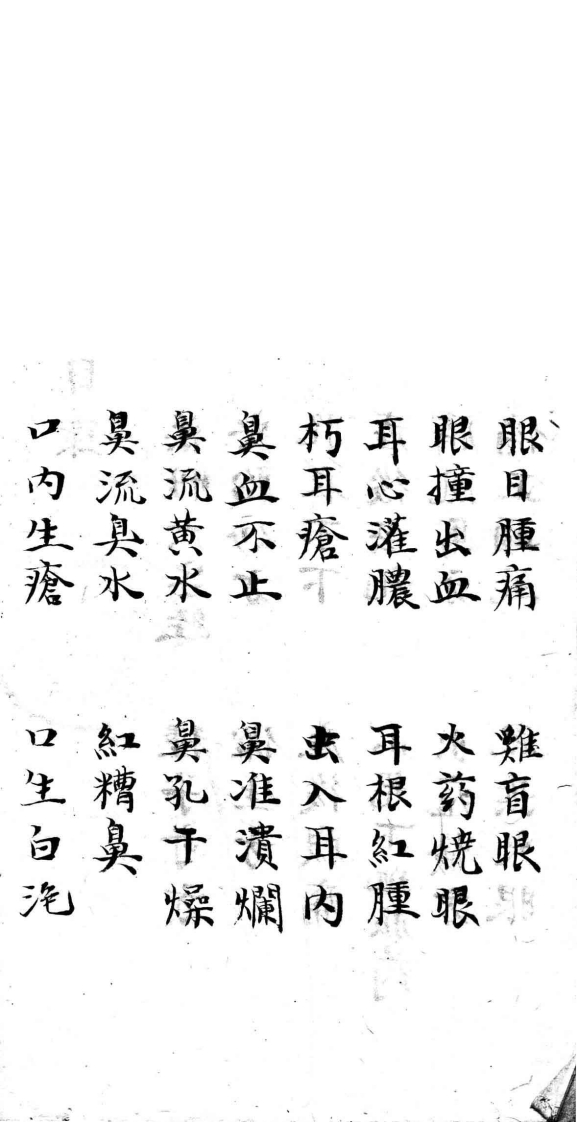 眼目腫痛
雞盲眼
眼撞出血
火药燒眼
耳心灌膿
耳根紅腫
朽耳瘡
虫入耳内
鼻血不止
鼻准潰爛
鼻流黄水
鼻孔干燥
鼻流臭水
紅糟鼻
口内生瘡
口生白泡